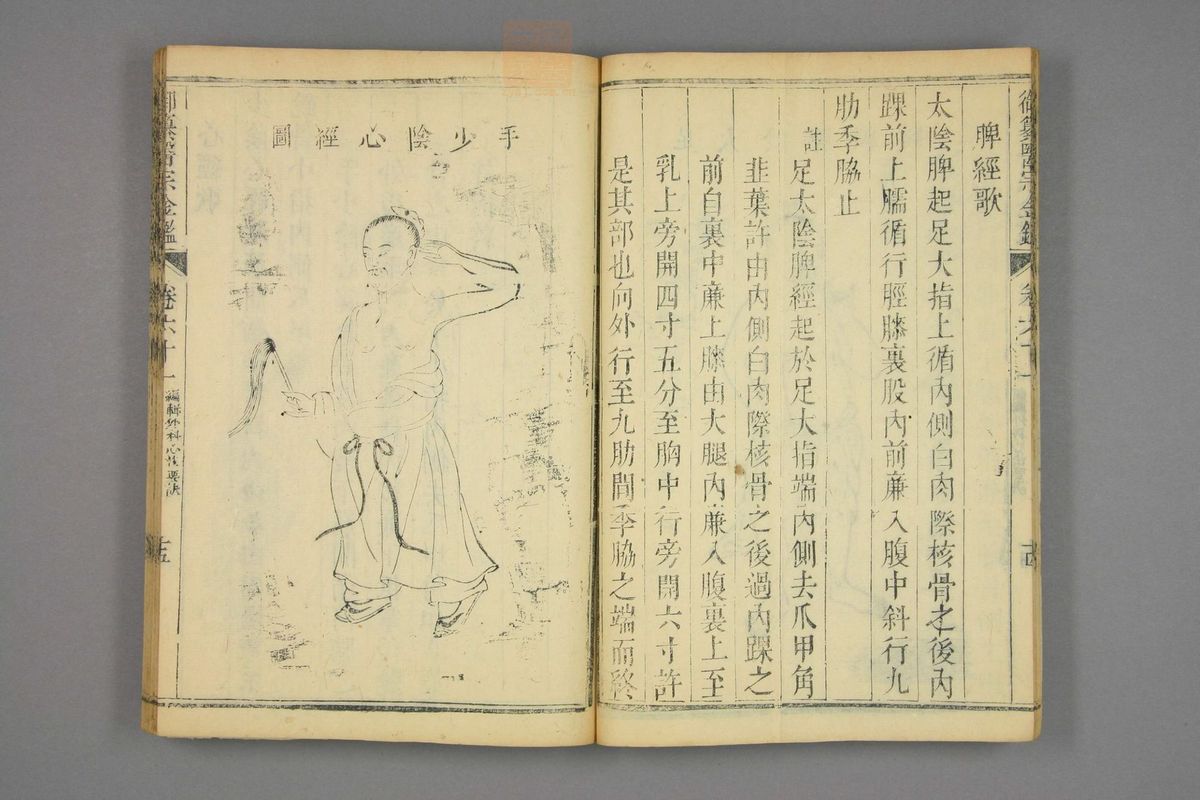 御纂醫宗金鑑
卷六十一
脾經歌
太陰脾起足大指上循內側白肉際核骨之後內
踝前上臑循行脛膝裏股內前廉入腹中斜行九
肋季脇止
註 足太陰脾經起於足大指端內側去爪甲角
韭葉許由內側白肉際核骨之後過內踝之
前白裏中廉上膝由大腿內廉入腹裏上至
乳上旁開四寸五分至胸中行旁開六寸許
是其部也向外行至九肋間季脇之端而終
手少陰心經圖
御纂醫宗金鑑
卷六十一
編輯外科心法要訣
十五